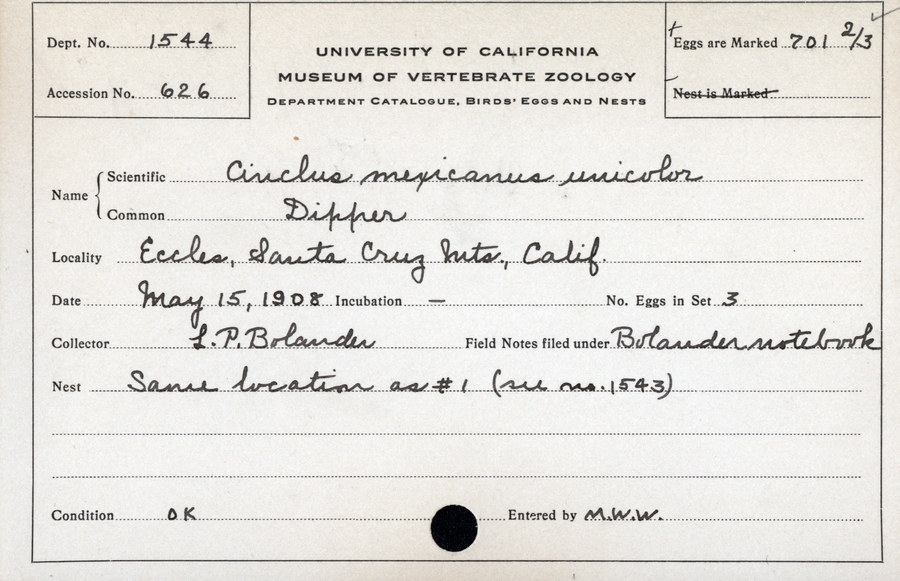 Dept. No. 1544
Accession No. 626
UNIVERSITY OF CALIFORNIA
MUSEUM OF VERTEBRATE ZOOLOGY
DEPARTMENT CATALOGUE, BIRDS' EGGS AND NESTS
Eggs are Marked 701 2/3
Nest is Marked
Name Scientific Cinclus mexicanus unicolor
Common Dipper
Locality Eccles, Santa Cruz Mts., Calif.
Date May 15, 1908 Incubation — No. Eggs in Set 3
Collector L. P. Bolander Field Notes filed under Bolander notebook
Nest Same location as #1 (see no. 1543)
Condition OK Entered by M.W.W.